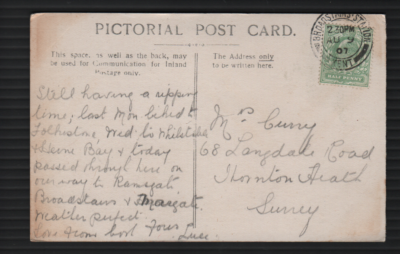 PICTORIAL POST CARD.
This space, as well as the back, may
be used for Communication for Inland
Postage only.
The Address only
to be written here.
BROADSTAIRS STATION
2 30PM
AU 9
07
KENT
HALF PENNY
Still having a ripping
time; last Mon biked to
Folkestone Wed to Whitstable
& Herne Bay & today
passed through here on
our way to Ramsgate
Broadstairs & Margate.
Weather perfect.
Love from both Yours
Mrs Curry
68 Langdale Road
Thornton Heath
Surrey